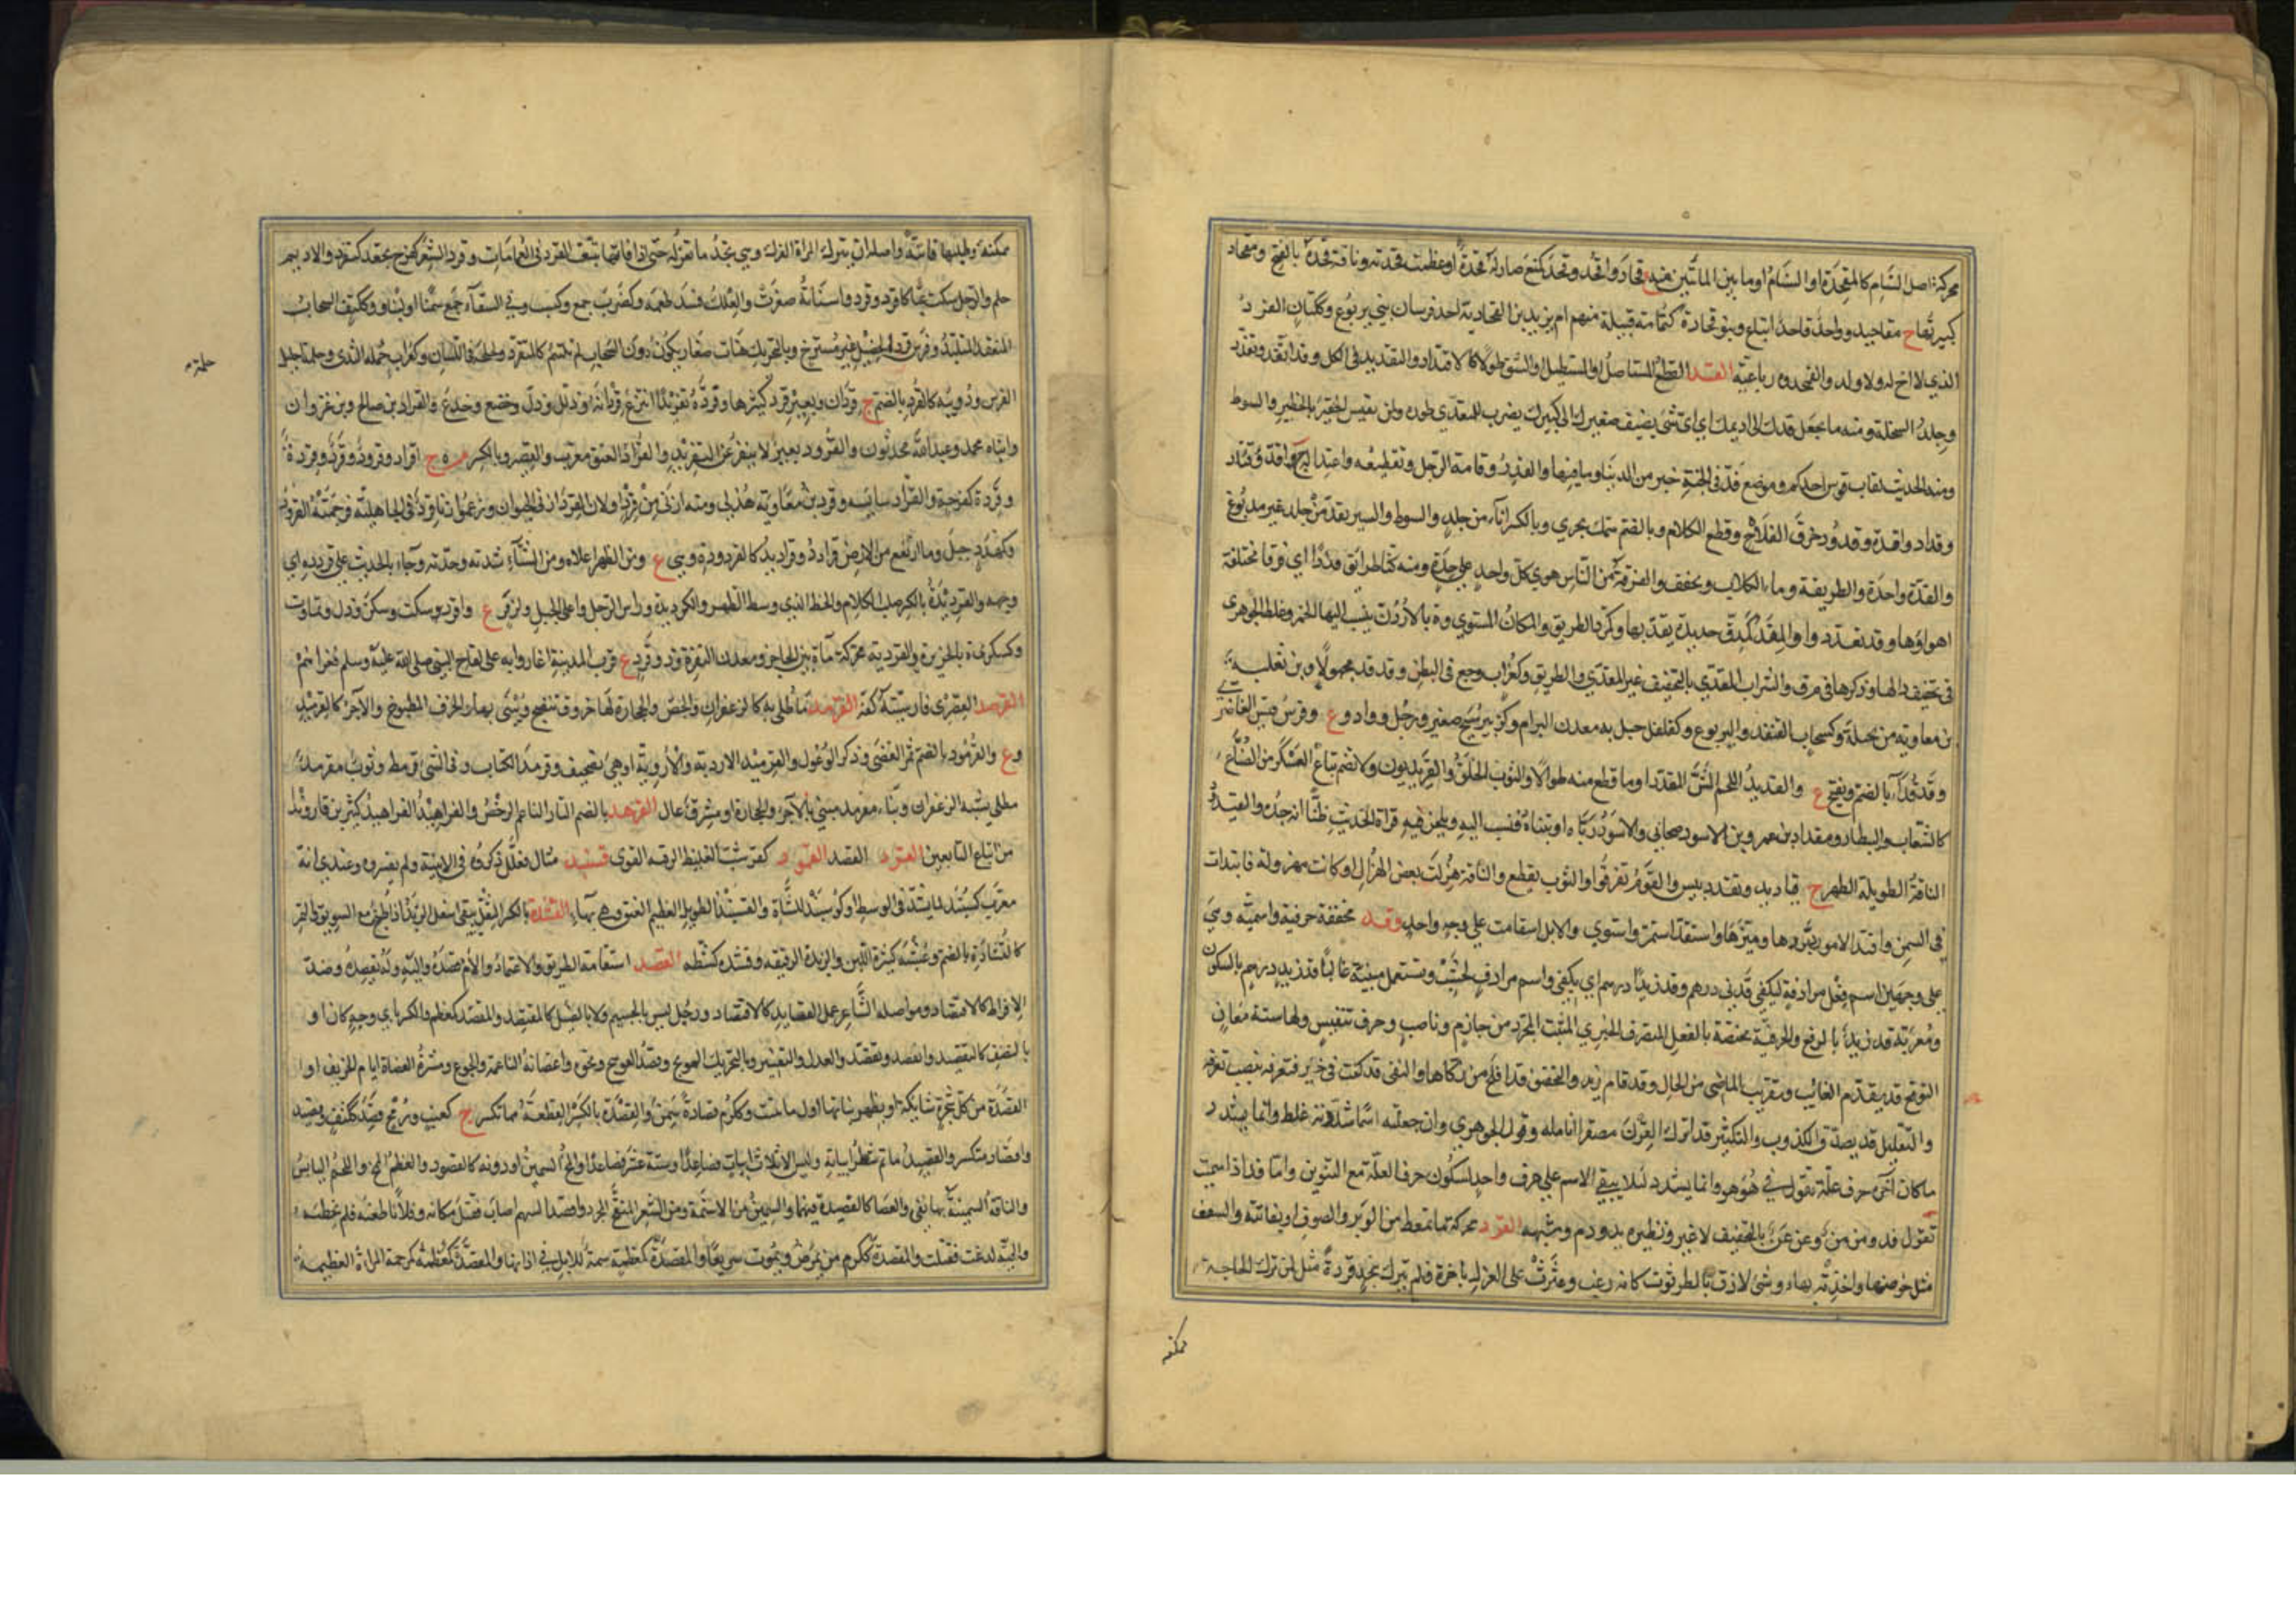 محركة اصل السنام كالمقحدة او السنام او ما بين المأنتين منه ج قحاد واقحد وقحد كمنع صار له قحدة او عظمت قحدته وناقة قحدة بالفتح ومقحاد
كبيرتها ج مقاحيد وواحد قاحد اتباع وبنو قحادة كثمامة قبيلة منهم ام يزيد بن القحادية احد فرسان بني يربوع وكتان الفرد
الذي لا اخ له ولا ولد والقمحدوه رباعية القد القطع المستاصل او المستطيل او الشق طولا كالاقتداد والتقديد في الكل وقد انقد وتقدد
وجلد السخلة ومنه ما يجعل قدك الى اديمك اي اي شيء يضيف صغيرك الى كبيرك يضرب للمتعدي طوره ولمن يقيس الحقير بالخطير والسوط
ومنه الحديث لقاب قوس احدكم وموضع قده في الجنة خير من الدنيا وما فيها والقدر وقامة الرجل وتقطيعه واعتداله ج اقد وقداد
وقداد واقدة وقدود وخرق الفلاة وقطع الكلام وبالضم سمك بحري وبالكسر اناء من جلد والسوط والسير يقد من جلد غير مدبوغ
والقدة واحدة والطريقة وماء لكلاب ويخفف والفرقة من الناس هوى كل واحد على حدة ومنه كنا طرائق قددا اي فرقا مختلفة
اهواؤها وقد تقددوا والمقد كمدق حديدة يقد بها وكمرد الطريق والمكان المستوي وة بالاردن ينسب اليها الخمر وغلط الجوهري
في تخفيف دالها وذكرها في م ق د والشراب المقدي بالتخفيف غير المقدي والطريق وكغراب وجع في البطن وقد قد مجهولا وبن ثعلبة
بن معاوية من بجيلة وكسحاب القنفذ واليربوع وكفلفل جبل به معدن البرام وكزبير مسيح صغير ورجل وواد وع وفرس قيس الغاضري
وقدقداء بالضم ويفتح ع والقديد اللحم المشرر المقدد او ما قطع منه طوالا والثوب الخلق والقديديون ولا تضم تباع العسكر من الصناع
كالشعاب والبيطار ومقداد بن عمرو بن الاسود صحابي والاسود رباه او تبناه فنسب اليه ويلحن فيه قراة الحديث ظنا انه جده والقيدود
الناقة الطويلة الظهر ج قياديد وتقدد يبس والقوم تفرقوا والثوب تقطع والناقة هزلت بعض الهزال او كانت مهزولة فابتدات
في السمن واقتد الامور دبرها وميزها واستقد استمر واستوى والابل استقامت على وجه واحد وقد مخففة حرفية واسمية وهي
على وجهين اسم فعل مرادفة ليكفي قدني درهم وقد زيدا درهم اي يكفي واسم مرادف لحسب وتستعمل مبنية غالبا قد زيد درهم بالسكون
ومعربة قد زيد بالرفع والحرفية مختصة بالفعل المتصرف الخبري المثبت المجرد من جازم وناصب وحرف تنفيس ولها ستة معان
التوقع قد يقدم الغائب وتقريب الماضي من الحال وقد قام زيد والتحقيق قد افلح من زكاها والنفي قد كنت في خير فتعرفه بنصب تعرفه
والتقليل قد يصدق الكذوب والتكثير قد اترك القرن مصفرا انامله وقول الجوهري وان جعلته اسما شددته غلط وانما يشدد
ما كان اخره حرف علة تقول في هو هو وانما يشدد لئلا يبقى الاسم على حرف واحد لسكون حرف العلة مع التنوين واما قد اذا سميت
تقول قد ومن من وعن عن بالتخفيف لا غير ونظيره يد ودم وشبهه القرد محركة ما تمعط من الوبر والصوف او نفايته والسعف
سل خوصها واحدته بهاء وشيء لازق بالطرثوث كانه زغب وعثرت على الغزل باخرة فلم تترك بنجد قردة مثل لمن ترك الحاجة
ممكنة
ممكنة وطلبها فائتة واصله ان تترك المراة الغزل وهي تجد ما تغزله حتى اذا فاتها تتبعت القرد في القمامات وقرد الشعر كفرح تجعد كتقرد والاديم
حلم والرجل سكت عيا كاقرد وقرد واسنانه صغرت والعلك فسد طعمه وكضرب جمع وكسب وفي السقاء جمع سمنا او لبنا وككتف السحاب
المنعقد المتلبد وفرس قرد الخصيل غير مسترخ وبالتحريك هنات صغار يكون دون السحاب لم تلتئم كالمتقرد ولجلجة في اللسان وكغراب حملة الثدي وحلمة احليل
حلمة
الفرس ودويبة كالقرد بالضم ج قردان وبعير قرد كثيرها وقرده تقريدا انتزع قردانه او ذلل وذل وخضع وخدع والقراد بن صالح وبن غزوان
وابناه محمد وعبد الله محدثون والقرود بعير لا ينفر عن التقريد والقرد العنق معرب والقصر وبالكسر م ج اقراد وقرود وقرد وقردة
وقردة كفرحة والقراد سايسه وقرد بن معاوية هذلي ومنه ازنى من قرد او لان القرد ازنى الحيوان وزعموا ان قردا زنى في الجاهلية فرجمته القرود
وكهدد جبل وما ارتفع من الارض قرادد وقراديد كالقردودة وبني ع ومن الظهر اعلاه ومن الشتاء شدته وحدته وجاء بالحديث على قردده اي
وجهه والقرديدة بالكسر صلب الكلام والخط الذي وسط الظهر والكرديدة وراس الرجل واعلى الجبل ولزقى ع واقرد سكت وسكن وذل وتماوت
وكسكرى ة بالجزيرة والقردية محركة ماءة بين الحاجز ومعدن النقرة وذو قرد ع قرب المدينة اغاروا به على لقاح النبي صلى الله عليه وسلم فغزاهم
القرصد القصري فارسيته كفه القرمد ما طلي به كالزعفران والجص والحجارة لها خروق تنضج ويبنى بها والخزف المطبوخ والآجر كالقرميد
وع والقرمود بالضم ثمر الغضى وذكر الوعول والقرميد الاردبة والاروية او هي تصحيف وقرمد الكتاب وفي المشي قرمط وثوب مقرمد
مطلي بشبه الزعفران وبناء مقرمد مبني بالآجر والحجارة او مشرف عال القرهد بالضم التار الناعم الرخص والفراهيد الفراهيد كثير بن قاروند
من اتباع التابعين القزد القصد القسود كقرشب الغليظ الرقبة القوي قسند مثال فعلل ذكروه في الابنية ولم يفسروه وعندي انه
معرب كسبند لما يشد في الوسط او كوسبند للشاة والقسبند الطويل العظيم العنق وهي بهاء القشدة بالكسر الثفل يبقى اسفل الزبد اذا طبخ مع السويق والتمر
كالقشادة بالضم وعشبة كثيرة اللبن والزبدة الرقيقة وقشده كشطه القصد استقامة الطريق والاعتماد والام قصده وله واليه يقصده وضد
الافراط كالاقتصاد ومواصلة الشاعر عمل القصايد كالاقتصاد ورجل ليس بالجسيم ولا بالضئيل كالمقتصد والمقصد كمعظم والكسر باي وجه كان او
بالنصف كالتقصيد وانقصد وتقصد والعدل والتقتير وبالتحريك العوسج وقصد العوسج ونحوه اغصانه الناعمة والجوع ومشرة العضاه ايام الخريف او
القصدة من كل شجرة شائكة ان يظهر نباتها اول ما ينبت وككرم قصادة سمن والقصدة بالكسر القطعة مما تكسر ج كعنب ورمح قصد ككتف وقصيد
واقصاد متكسر والقصيد ما تم شطر ابياته وليس الا ثلاثة ابيات فصاعدا او ستة عشر فصاعدا والمخ السمين او دونه كالقصود والعظم الممخ واللحم اليابس
والناقة السمينة بها نقي والعصا كالقصيدة فيهما والسمين من الاسنمة ومن الشعر المنقح المجود واقصد السهم اصاب فقتل مكانه وفلانا طعنه فلم يخطئه
والحية لدغت فقتلت والمقصدة كمكرم من يمرض ويموت سريعا والمقصدة كمعظمة سمة للابل في اذانها والمقصدة كمعظمة المراة العظيمة